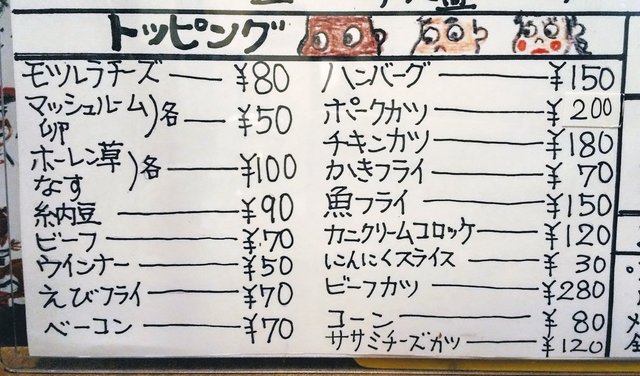 トッピング
モツルラチーズ ¥80
マッシュルーム
卵 )各 ¥50
ホーレン草
なす )各 ¥100
納内豆 ¥90
ビーフ ¥70
ウインナー ¥50
えびフライ ¥70
ベーコン ¥70
ハンバーグ ¥150
ポークカツ ¥200
チキンカツ ¥180
かきフライ ¥70
魚フライ ¥150
カニクリームコロッケ ¥120
にんにくスライス ¥30
ビーフカツ ¥280
コーン ¥80
ササミチーズカツ ¥120